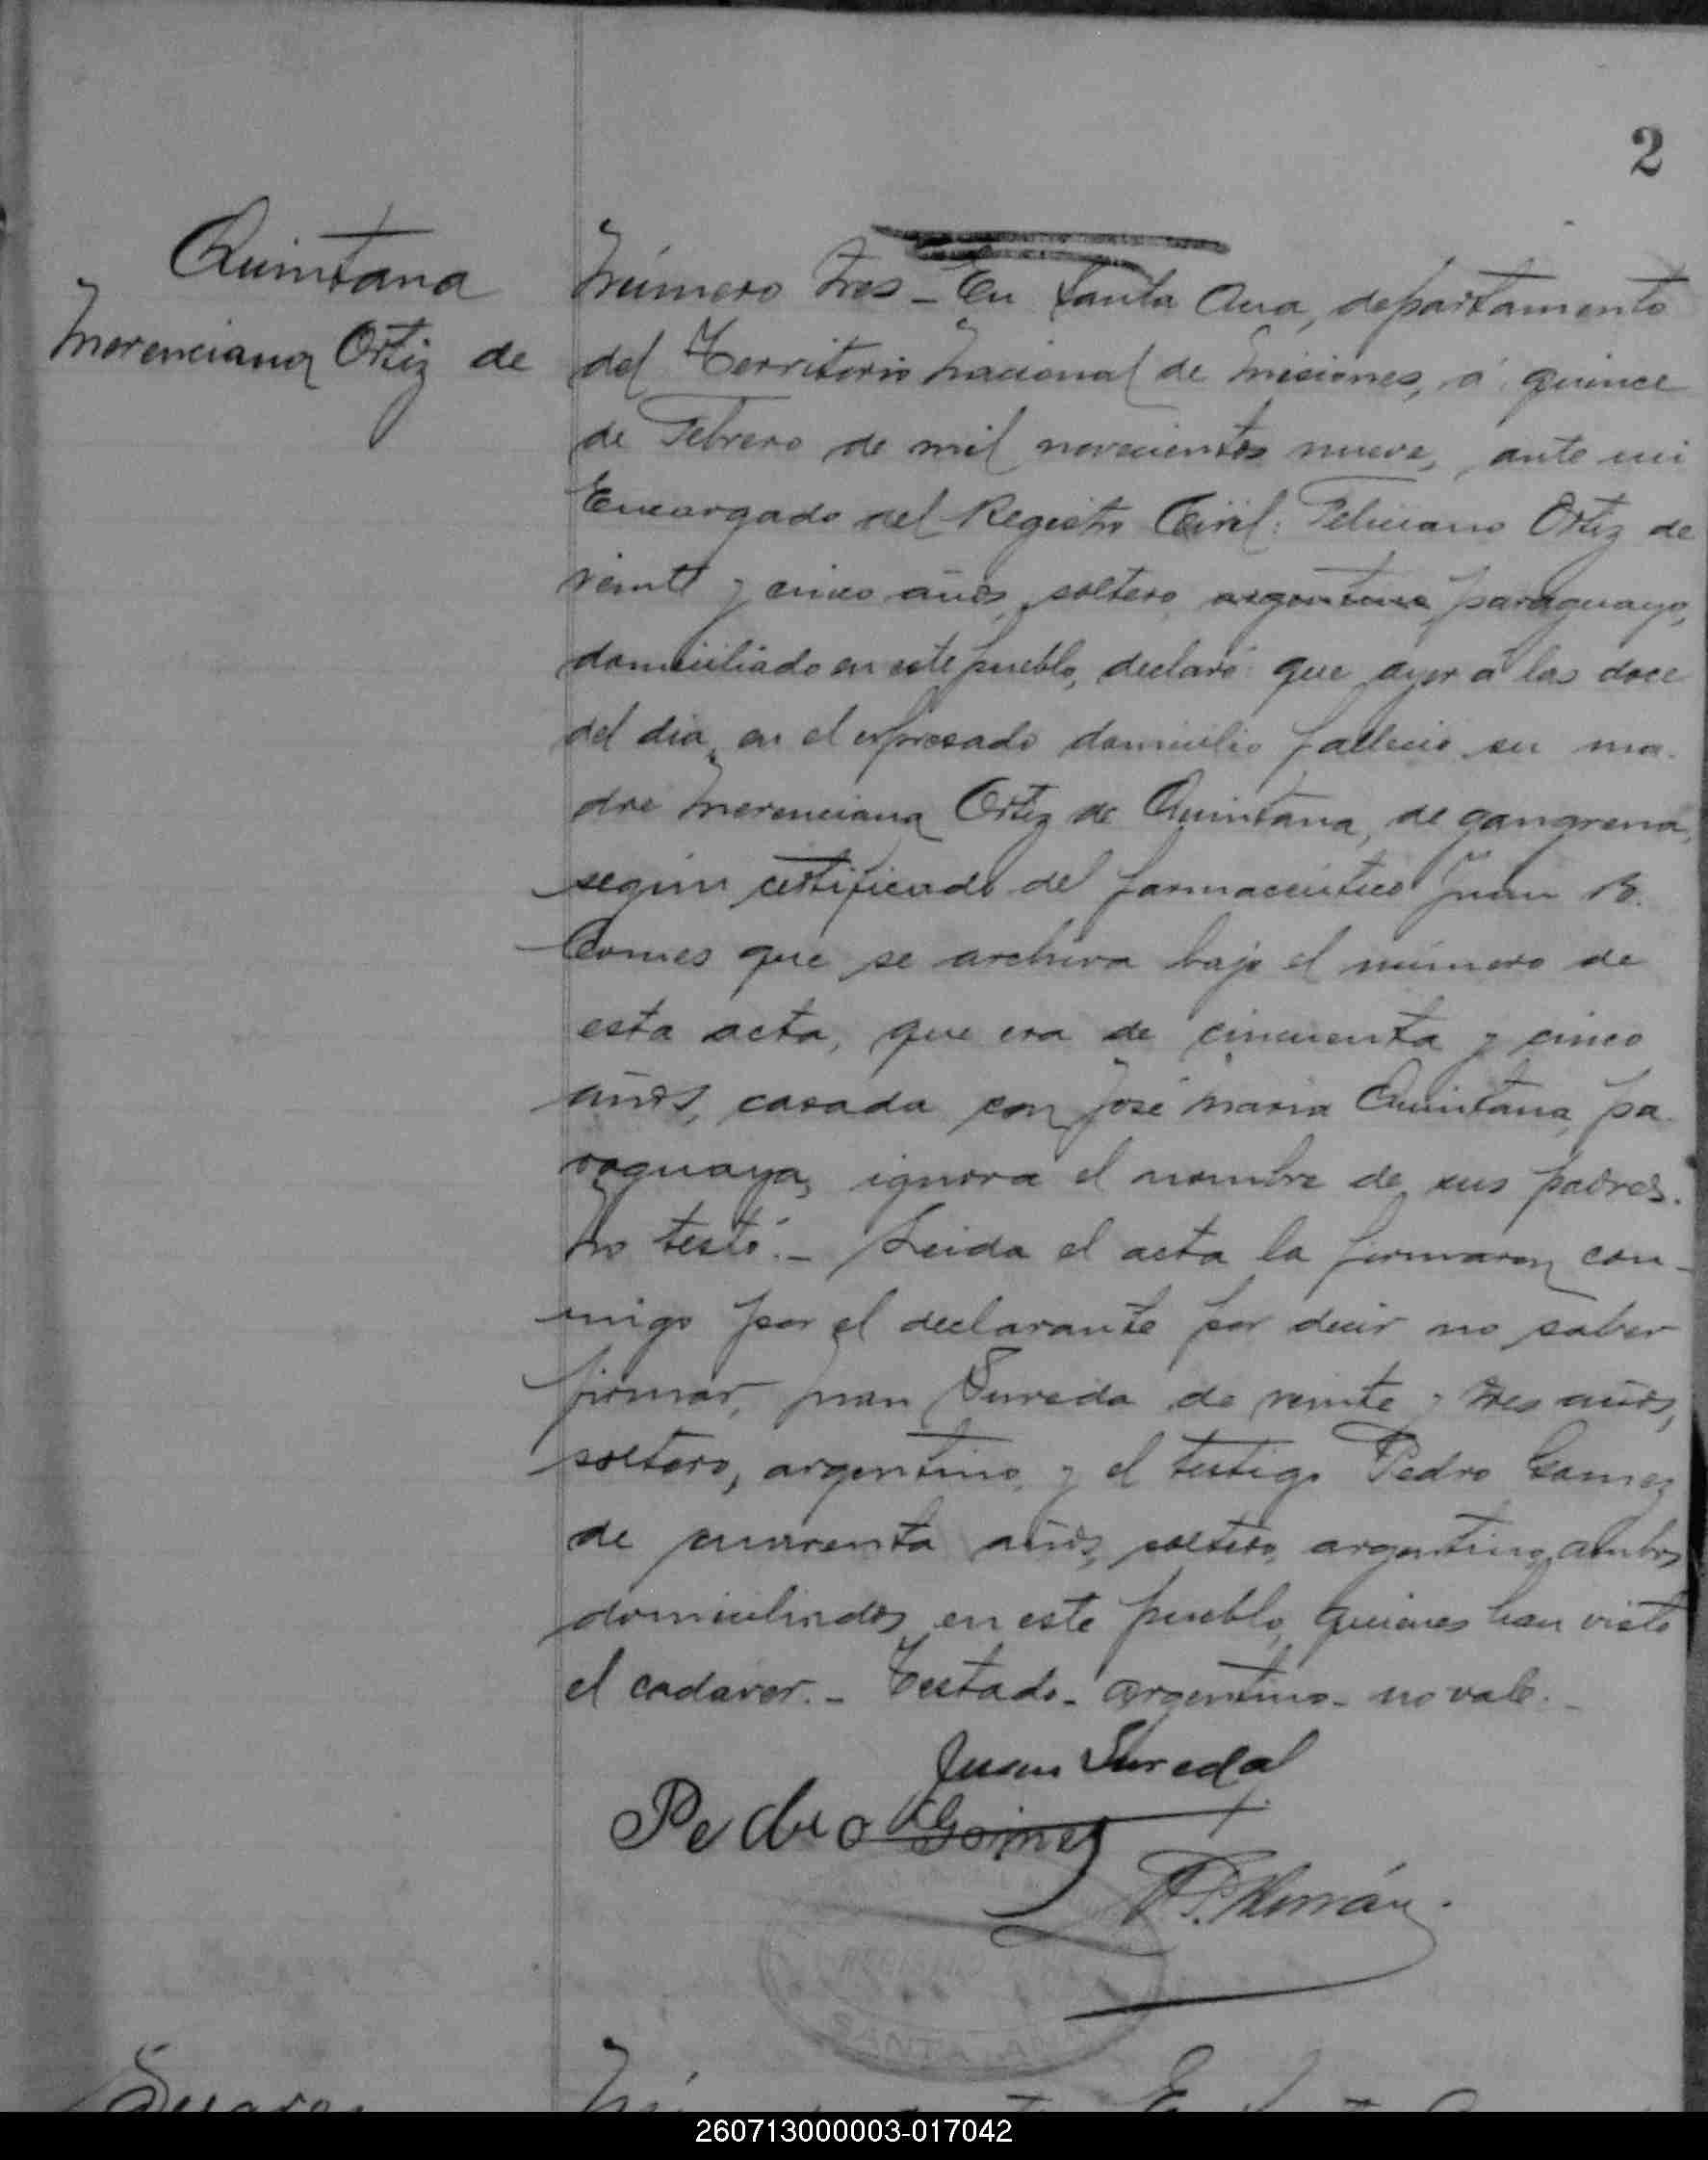 2
Quintana
Merenciana Ortiz de
Número tres - En Santa Ana, departamento
del Territorio Nacional de Misiones, á quince
de Febrero de mil novecientos nueve, ante mi
Encargado del Registro Civil: Feliciano Ortiz de
veinte y cinco años, soltero, argentino, paraguayo,
domiciliado en este pueblo, declaró: que ayer á las doce
del dia, en el expresado domicilio falleció su ma-
dre Merenciana Ortiz de Quintana, de gangrena,
según certificado del farmacéutico Juan B.
Comes que se archiva bajo el número de
esta acta, que era de cincuenta y cinco
años, casada con José Maria Quintana, pa-
raguaya, ignora el nombre de sus padres.
No testó. - Leida el acta la firmaron con-
migo por el declarante por decir no saber
firmar, Juan Sureda de veinte y tres años,
soltero, argentino, y el testigo Pedro Gomez
de cuarenta años, soltero, argentino, ambos
domiciliados en este pueblo, quienes han visto
el cadaver. - Testado - argentino - no vale. -
Juan Sureda
Pedro Gomez
REGISTRO
Suarez
260713000003-017042